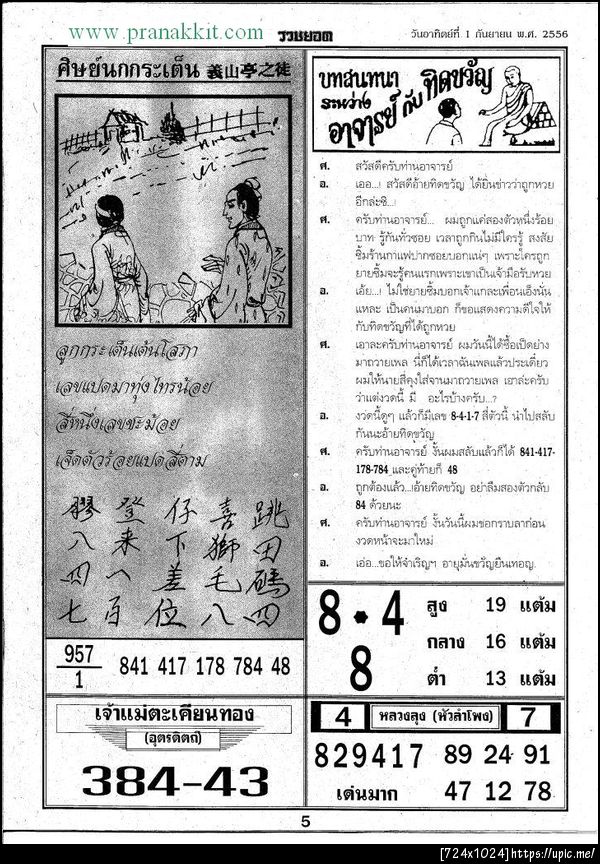 www.pranakkit.com
รวชยอด
วันอาทิตย์ที่ 1 กันยายน พ.ศ. 2556
ศิษย์นกกระเต็น 義山亭之徒
ลูกกระเต็นเต้นโลภา
เลขแปดมาทุ่งไทรน้อย
สี่หนึ่งเลขขะม้อย
เจ็ดตัวร้อยแปดสี่ตาม
跳田碼四
喜獅毛八
仔下差位
登来一百
膠八四七
957
1
841 417 178 784 48
เจ้าแม่ตะเคียนทอง
(อุตรดิตถ์)
384-43
บทสนทนา
ระหว่าง
อาจารย์ กับ ทิดขวัญ
ศ. สวัสดีครับท่านอาจารย์
อ. เออ...! สวัสดีอ้ายทิดขวัญ ได้ยินข่าวว่าถูกหวย
อีกล่ะซิ...!
ศ. ครับท่านอาจารย์... ผมถูกแค่สองตัวหนึ่งร้อย
บาท รู้กันทั่วซอย เวลาถูกกินไม่มีใครรู้ สงสัย
ซิ้มร้านกาแฟปากซอยบอกแน่ๆ เพราะใครถูก
ยายซิ้มจะรู้คนแรกเพราะเขาเป็นเจ้ามือรับหวย
อ. เอ้ย...! ไม่ใช่ยายซิ้มบอกเจ้าแกละเพื่อนเอ็งนั่น
แหละ เป็นคนมาบอก ก็ขอแสดงความดีใจให้
กับทิดขวัญที่ได้ถูกหวย
ศ. เอาละครับท่านอาจารย์ ผมวันนี้ได้ซื้อเป็ดย่าง
มาถวายเพล นี่ก็ได้เวลาฉันเพลแล้วประเดี๋ยว
ผมให้นายสี่คุงใส่จานมาถวายเพล เอาล่ะครับ
ว่าแต่งวดนี้ มี อะไรบ้างครับ...?
อ. งวดนี้ดูๆ แล้วก็มีเลข 8-4-1-7 สี่ตัวนี้ นำไปสลับ
กันนะอ้ายทิดขวัญ
ศ. ครับท่านอาจารย์ งั้นผมสลับแล้วก็ได้ 841-417-
178-784 และคู่ท้ายก็ 48
อ. ถูกต้องแล้ว...!อ้ายทิดขวัญ อย่าลืมสองตัวกลับ
84 ด้วยนะ
ศ. ครับท่านอาจารย์ งั้นวันนี้ผมขอกราบลาก่อน
งวดหน้าจะมาใหม่
อ. เอ่อ...ขอให้จำเริญๆ อายุมั่นขวัญยืนเทอญ.
8 • 4
8
สูง 19 แต้ม
กลาง 16 แต้ม
ต่ำ 13 แต้ม
4 หลวงลุง (หัวลำโพง) 7
829417 89 24 91
เด่นมาก 47 12 78
5
[724x1024]https://upic.me/